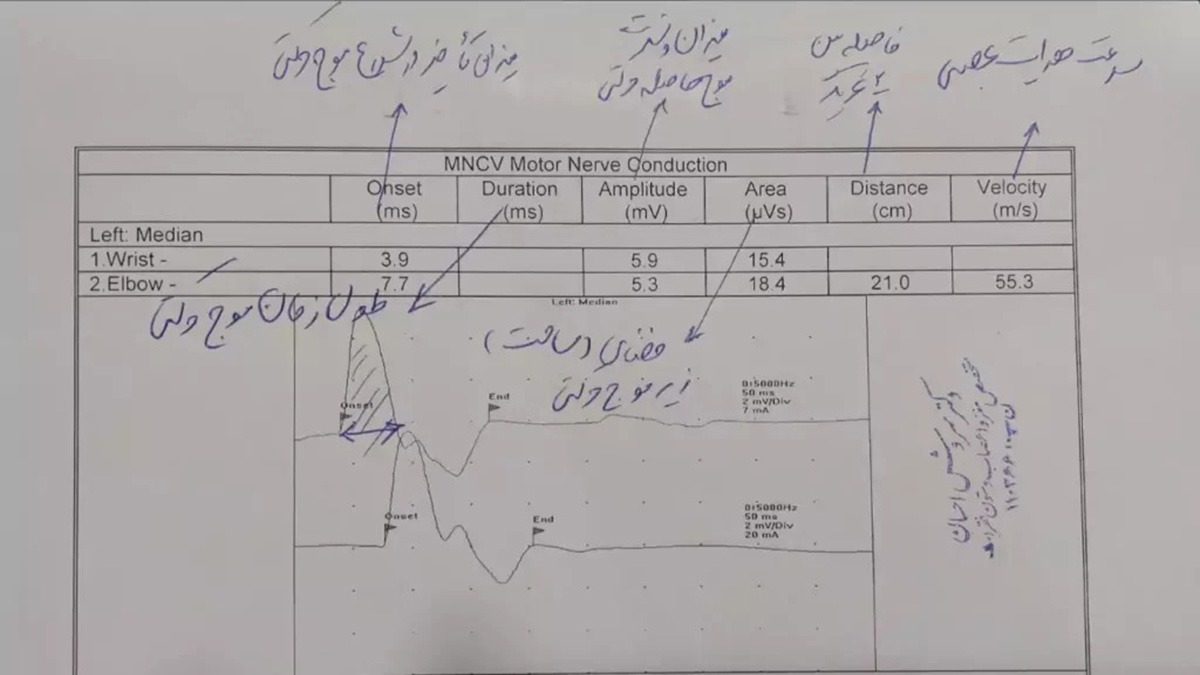 میزان تأخیر در شروع موج حرکتی
میزان و شدت
موج حاصله حرکتی
فاصله بین
۲ تحریک
سرعت هدایت عصبی
MNCV Motor Nerve Conduction
Onset (ms) Duration (ms) Amplitude (mV) Area (µVs) Distance (cm) Velocity (m/s)
Left: Median
1.Wrist - 3.9 5.9 15.4
2.Elbow - 7.7 5.3 18.4 21.0 55.3
Left: Median
طول زمان موج حرکتی
فضای (مساحت)
زیر موج حرکتی
Onset
End
0:5000Hz
50 ms
2 mV/Div
7 mA
Onset
End
0:5000Hz
50 ms
2 mV/Div
20 mA
دکتر سروش
متخصص مغز و اعصاب و ستون فقرات